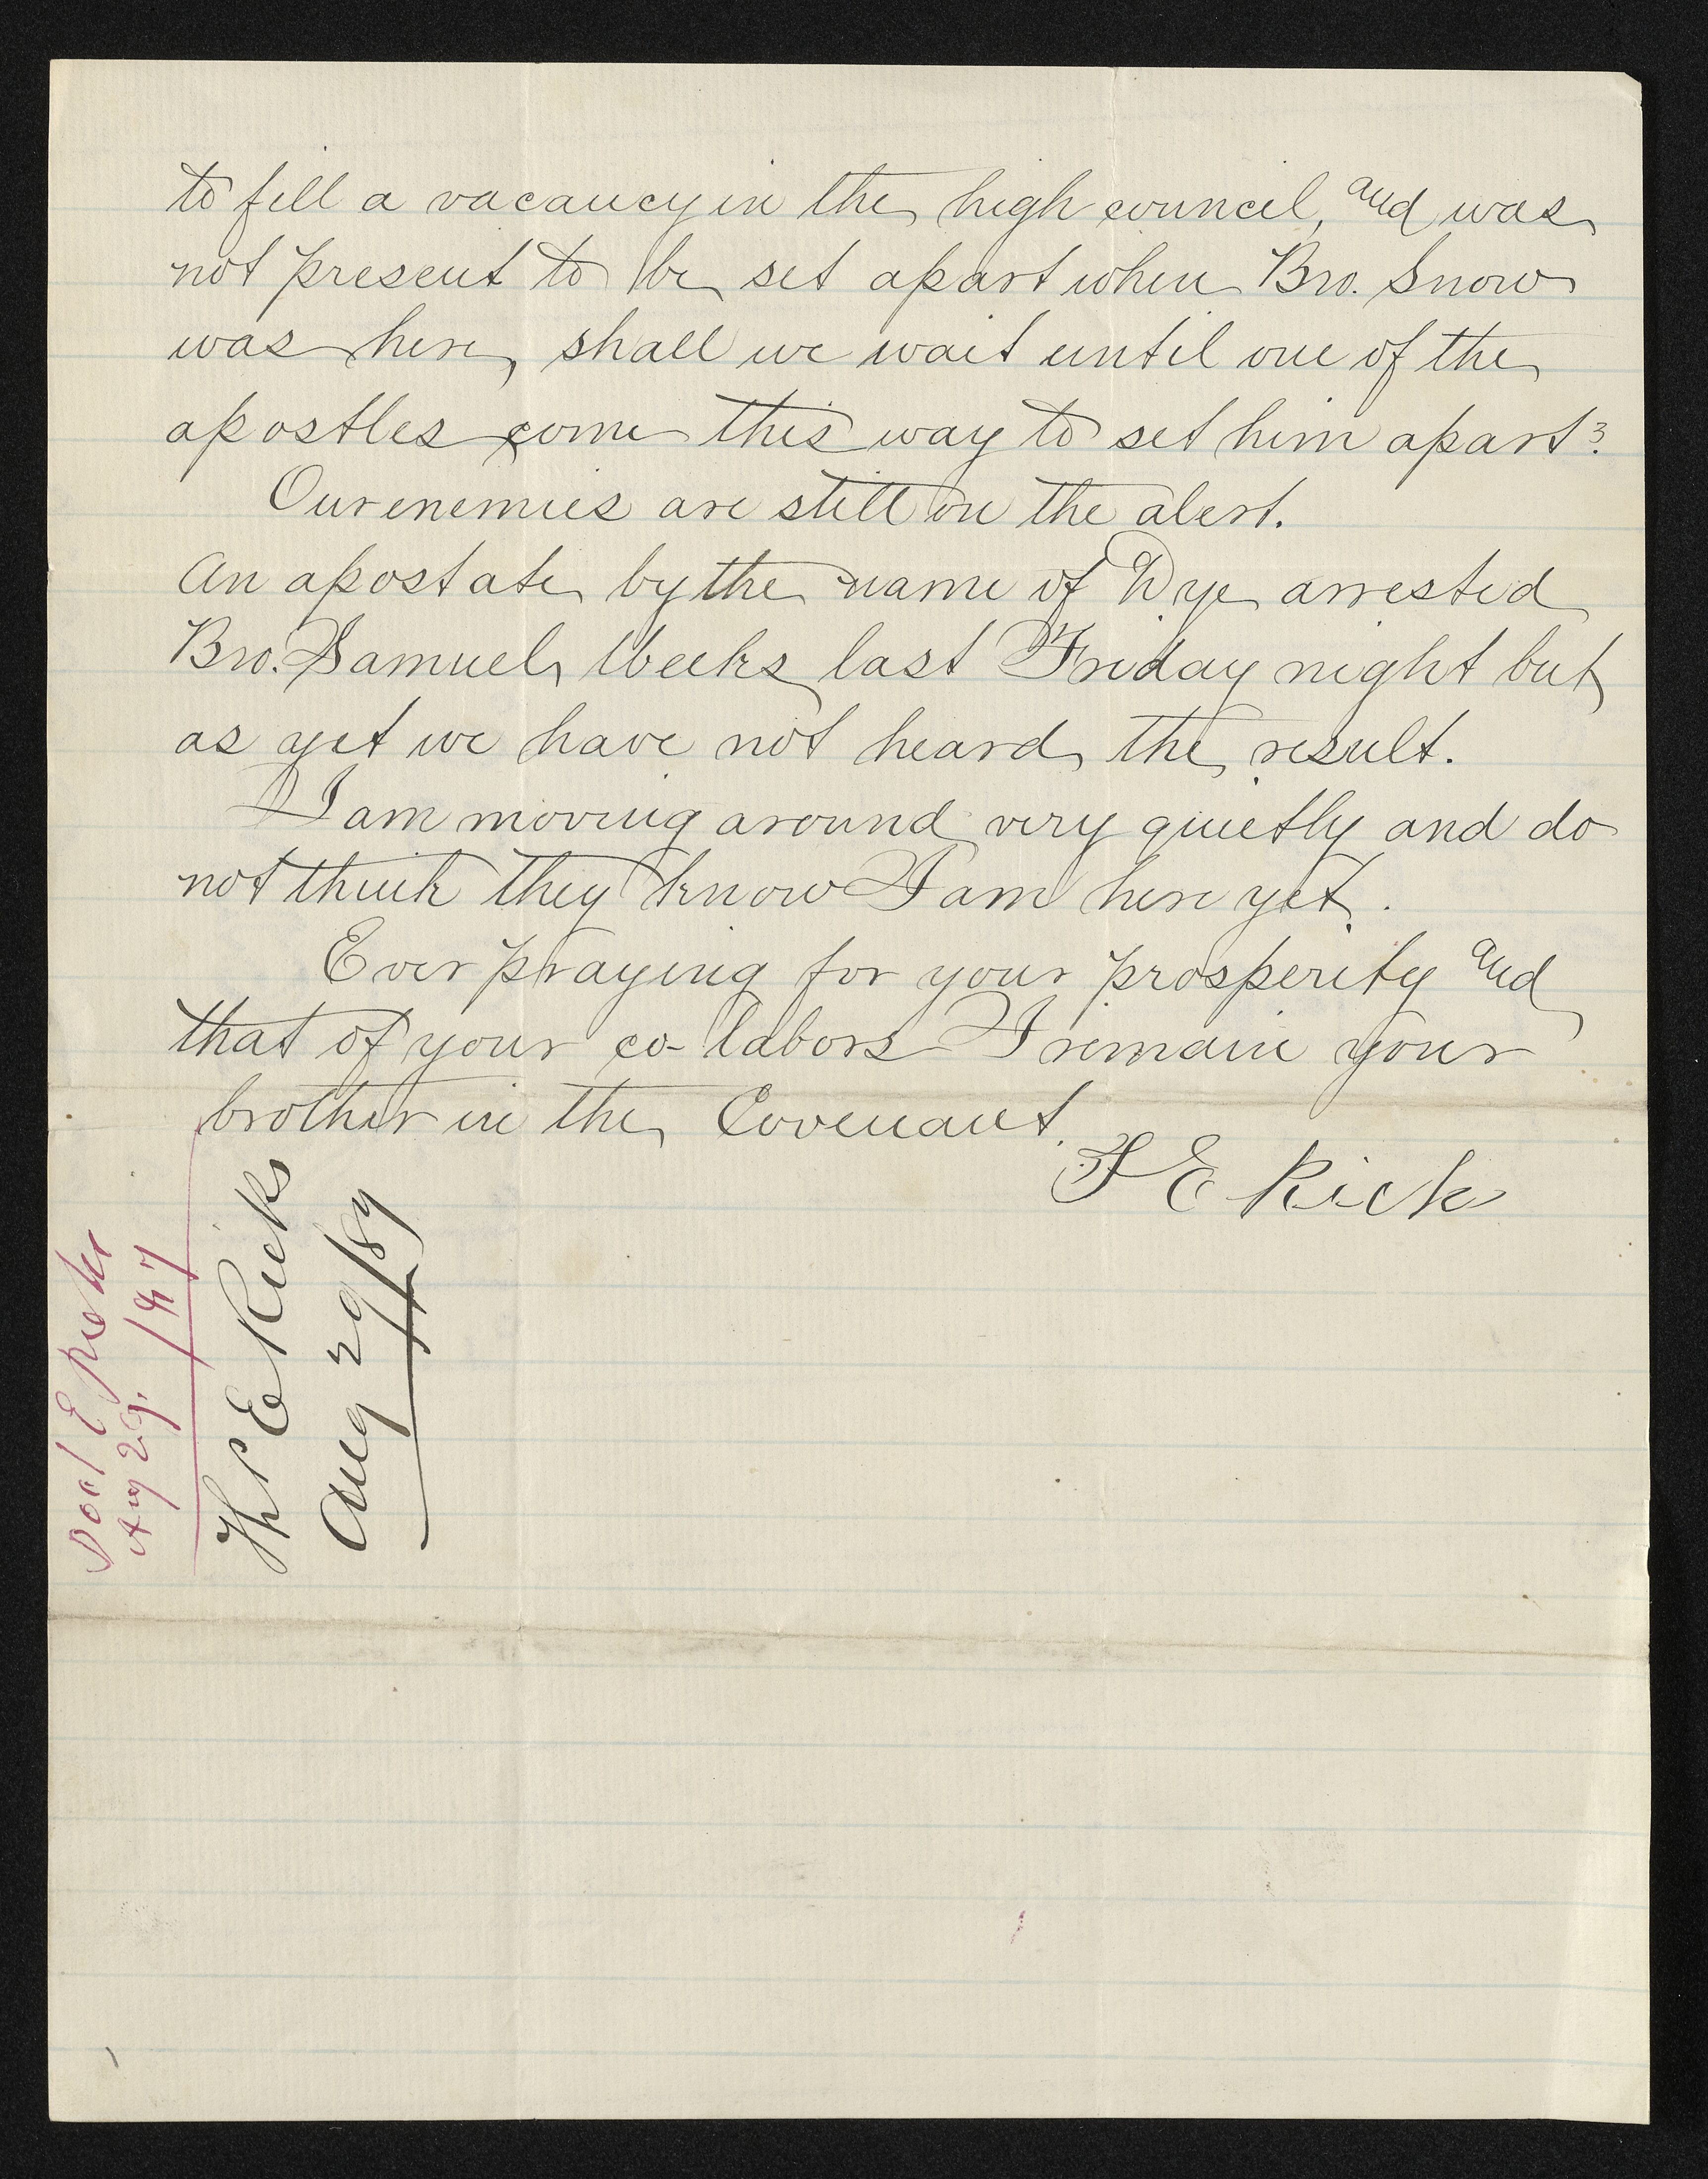 to fill a vacancy in the high council, and was
not present to be set apart when Bro. Snow
was here, shall we wait until one of the
apostles come this way to set him apart?
Our enemies are still on the alert.
An apostate by the name of Dye arrested
Bro. Samuel Weeks last Friday night but
as yet we have not heard the result.
I am moving around very quietly and do
not think they know I am here yet.
Ever praying for your prosperity and
that of your co-labors I remain your
brother in the Covenant.
T E Rick
Thos E Ricks
Aug 29/87
Aug 29. /87